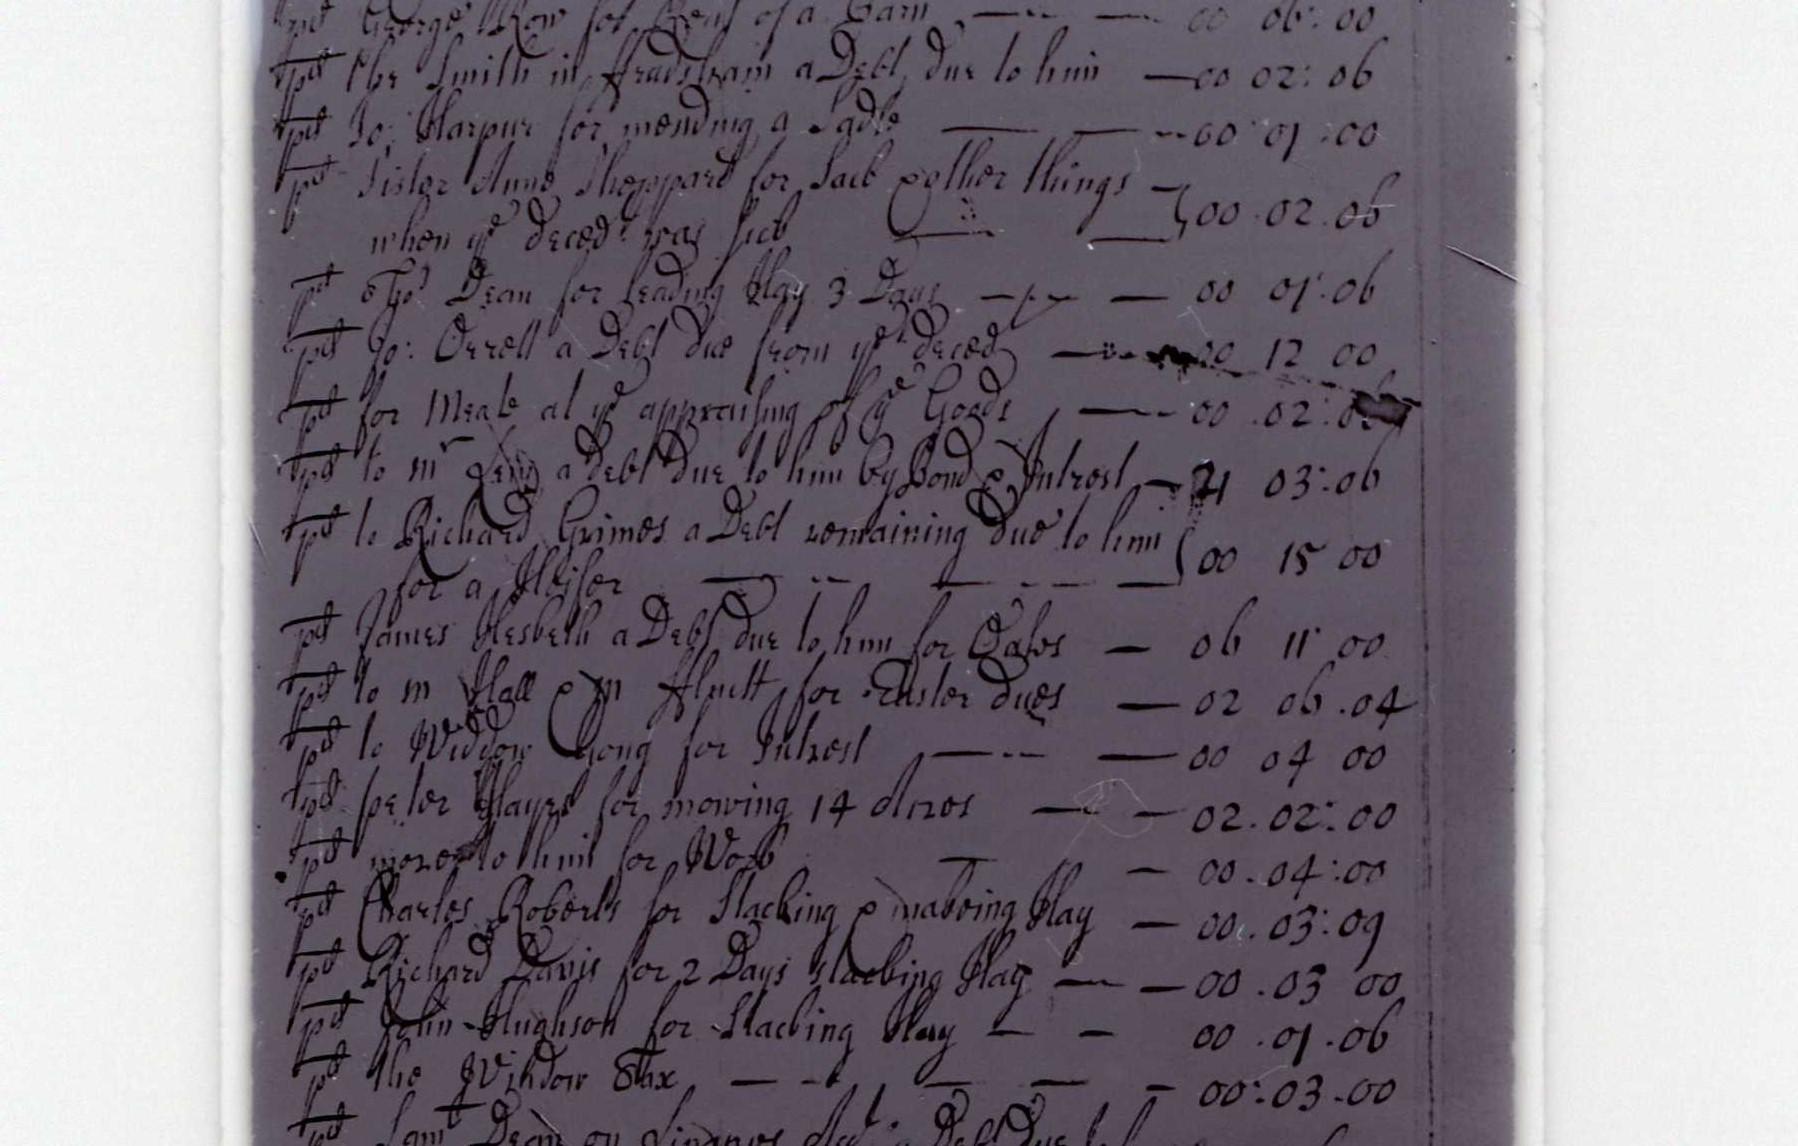 pd George Row for Rent of a Barn — 00 06: 00
pd Smith in Frodsham a Debt due to him — 00 02: 06
pd Jo: Harpur for mending a Sadle — 00 01 .00
pd Sister Anne Sheppard for Sack & other things
when ye deced was sick — 00 .02 .06
pd Tho: Dean for leading Hay 3 Days — 00 01 .06
pd Jo: Orrell a Debt due from ye deced — 00 12 00
pd for Meate at ye appraising of ye Goods — 00 .02:
pd to mr a debt due to him by Bond & Intrest — 21 03:06
pd to Richard Grimes a Debt remaining due to him
for a Heifer — 00 15 00
pd James Hesketh a Debt due to him for — 06 11 00
pd to mr Hall & mr for Easter dues — 02 06 .04
pd to Widdow Gong for Intrest — 00 04 00
pd peter Hayes for mowing 14 Acres — 02. 02: 00
pd more to him for Work — 00. 04:00
pd Charles Roberts for Stacking & makeing Hay — 00. 03:09
pd Richard Davis for 2 Days stacking Hay — 00 .03 00
pd John Hughson for Stacking Hay — 00 .01 .06
pd the Window Tax — 00:03.00
pd Sam: Dean a Debt Due